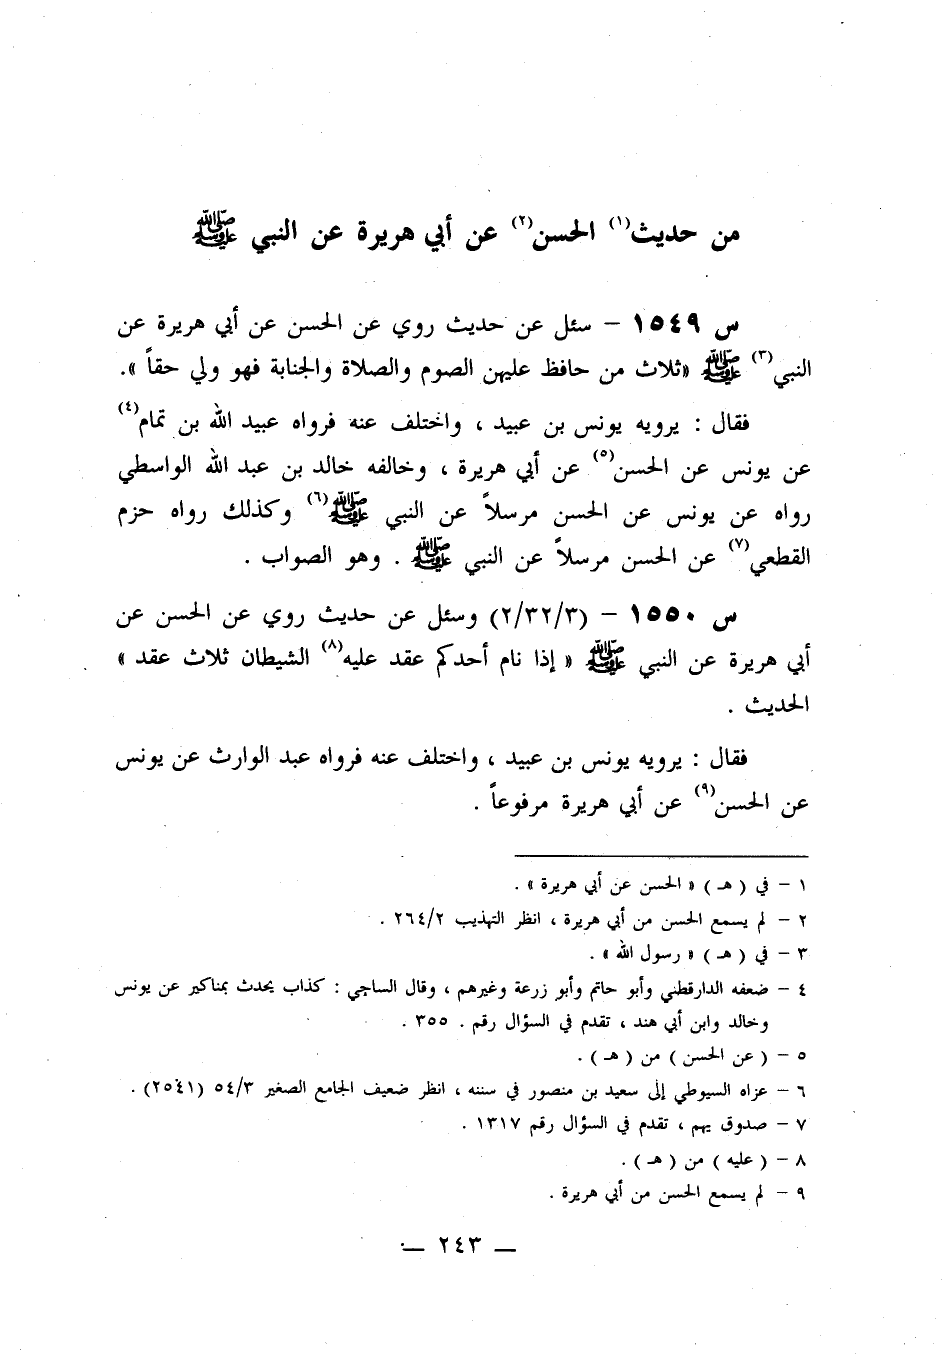 من حديث(١) الحسن(٢) عن أبي هريرة عن النبي ﷺ
س ١٥٤٩ - سئل عن حديث روي عن الحسن عن أبي هريرة عن
النبي(٣) ﷺ «ثلاث من حافظ عليهن الصوم والصلاة والجنابة فهو ولي حقاً».
فقال : يرويه يونس بن عبيد ، واختلف عنه فرواه عبيد الله بن تمام(٤)
عن يونس عن الحسن(٥) عن أبي هريرة ، وخالفه خالد بن عبد الله الواسطي
رواه عن يونس عن الحسن مرسلاً عن النبي ﷺ(٦) وكذلك رواه حزم
القطعي(٧) عن الحسن مرسلاً عن النبي ﷺ . وهو الصواب .
س ١٥٥٠ - (٢/٣٢/٣) وسئل عن حديث روي عن الحسن عن
أبي هريرة عن النبي ﷺ « إذا نام أحدكم عقد عليه(٨) الشيطان ثلاث عقد »
الحديث .
فقال : يرويه يونس بن عبيد ، واختلف عنه فرواه عبد الوارث عن يونس
عن الحسن(٩) عن أبي هريرة مرفوعاً .
١ - في ( هـ ) « الحسن عن أبي هريرة » .
٢ - لم يسمع الحسن من أبي هريرة ، انظر التهذيب ٢٦٤/٢ .
٣ - في ( هـ ) « رسول الله » .
٤ - ضعفه الدارقطني وأبو حاتم وأبو زرعة وغيرهم ، وقال الساجي : كذاب يحدث بمناكير عن يونس
وخالد وابن أبي هند ، تقدم في السؤال رقم . ٣٥٥ .
٥ - ( عن الحسن ) من ( هـ ) .
٦ - عزاه السيوطي إلى سعيد بن منصور في سننه ، انظر ضعيف الجامع الصغير ٥٤/٣ (٢٥٤١) .
٧ - صدوق يهم ، تقدم في السؤال رقم ١٣١٧ .
٨ - ( عليه ) من ( هـ ) .
٩ - لم يسمع الحسن من أبي هريرة .
— ٢٤٣ —